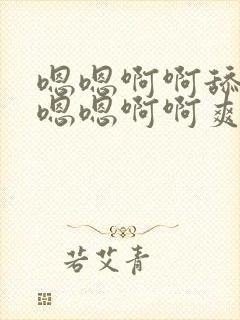 嗯嗯啊啊舔
嗯嗯啊啊爽
若艾青